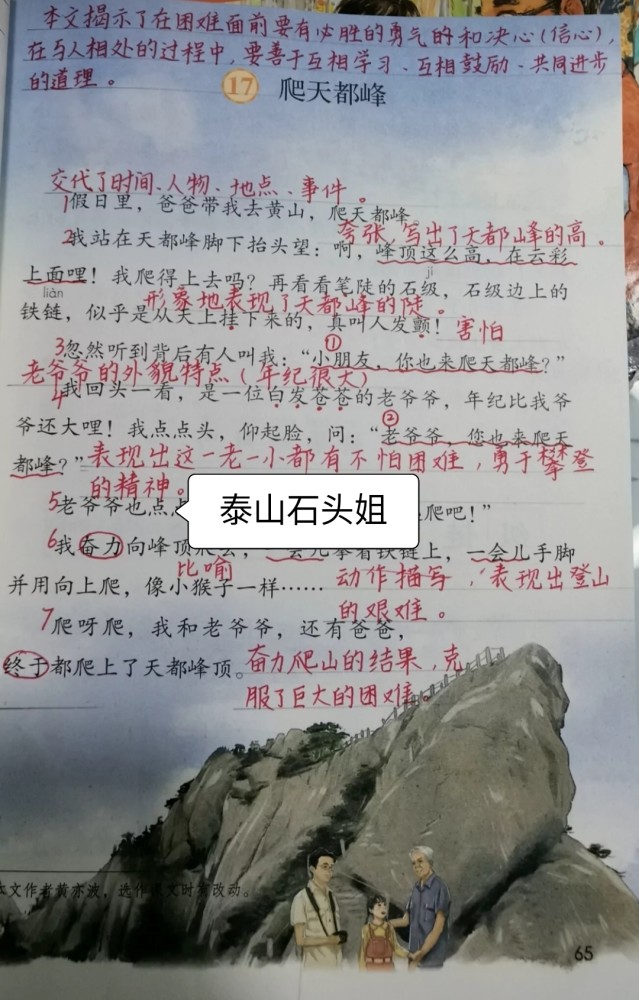 本文揭示了在困难面前要有必胜的勇气的和决心(信心),
在与人相处的过程中,要善于互相学习、互相鼓励、共同进步
的道理。
17 爬天都峰
交代了时间、人物、地点、事件。
1假日里,爸爸带我去黄山,爬天都峰
夸张,写出了天都峰的高。
2我站在天都峰脚下抬头望:啊,峰顶这么高,在云彩
jī
上面哩!我爬得上去吗?再看看笔陡的石级,石级边上的
liàn
形象地表现了天都峰的陡。
铁链,似乎是从天上挂下来的,真叫人发颤!害怕
①
3忽然听到背后有人叫我:“小朋友,你也来爬天都峰?”
老爷爷的外貌特点(年纪很大)
4我回头一看,是一位白发苍苍的老爷爷,年纪比我爷
②
爷还大哩!我点点头,仰起脸,问:“老爷爷,您也来爬天
都峰?”表现出这一老一小都有不怕困难,勇于攀登
的精神。
5老爷爷也点点
泰山石头姐
爬吧!”
6我奋力向峰顶爬去,一会儿攀着铁链上,一会儿手脚
比喻
并用向上爬,像小猴子一样……动作描写,表现出登山
的艰难。
7爬呀爬,我和老爷爷,还有爸爸,
终于都爬上了天都峰顶。奋力爬山的结果,克
服了巨大的困难。
本文作者黄亦波,选作课文时有改动。
65